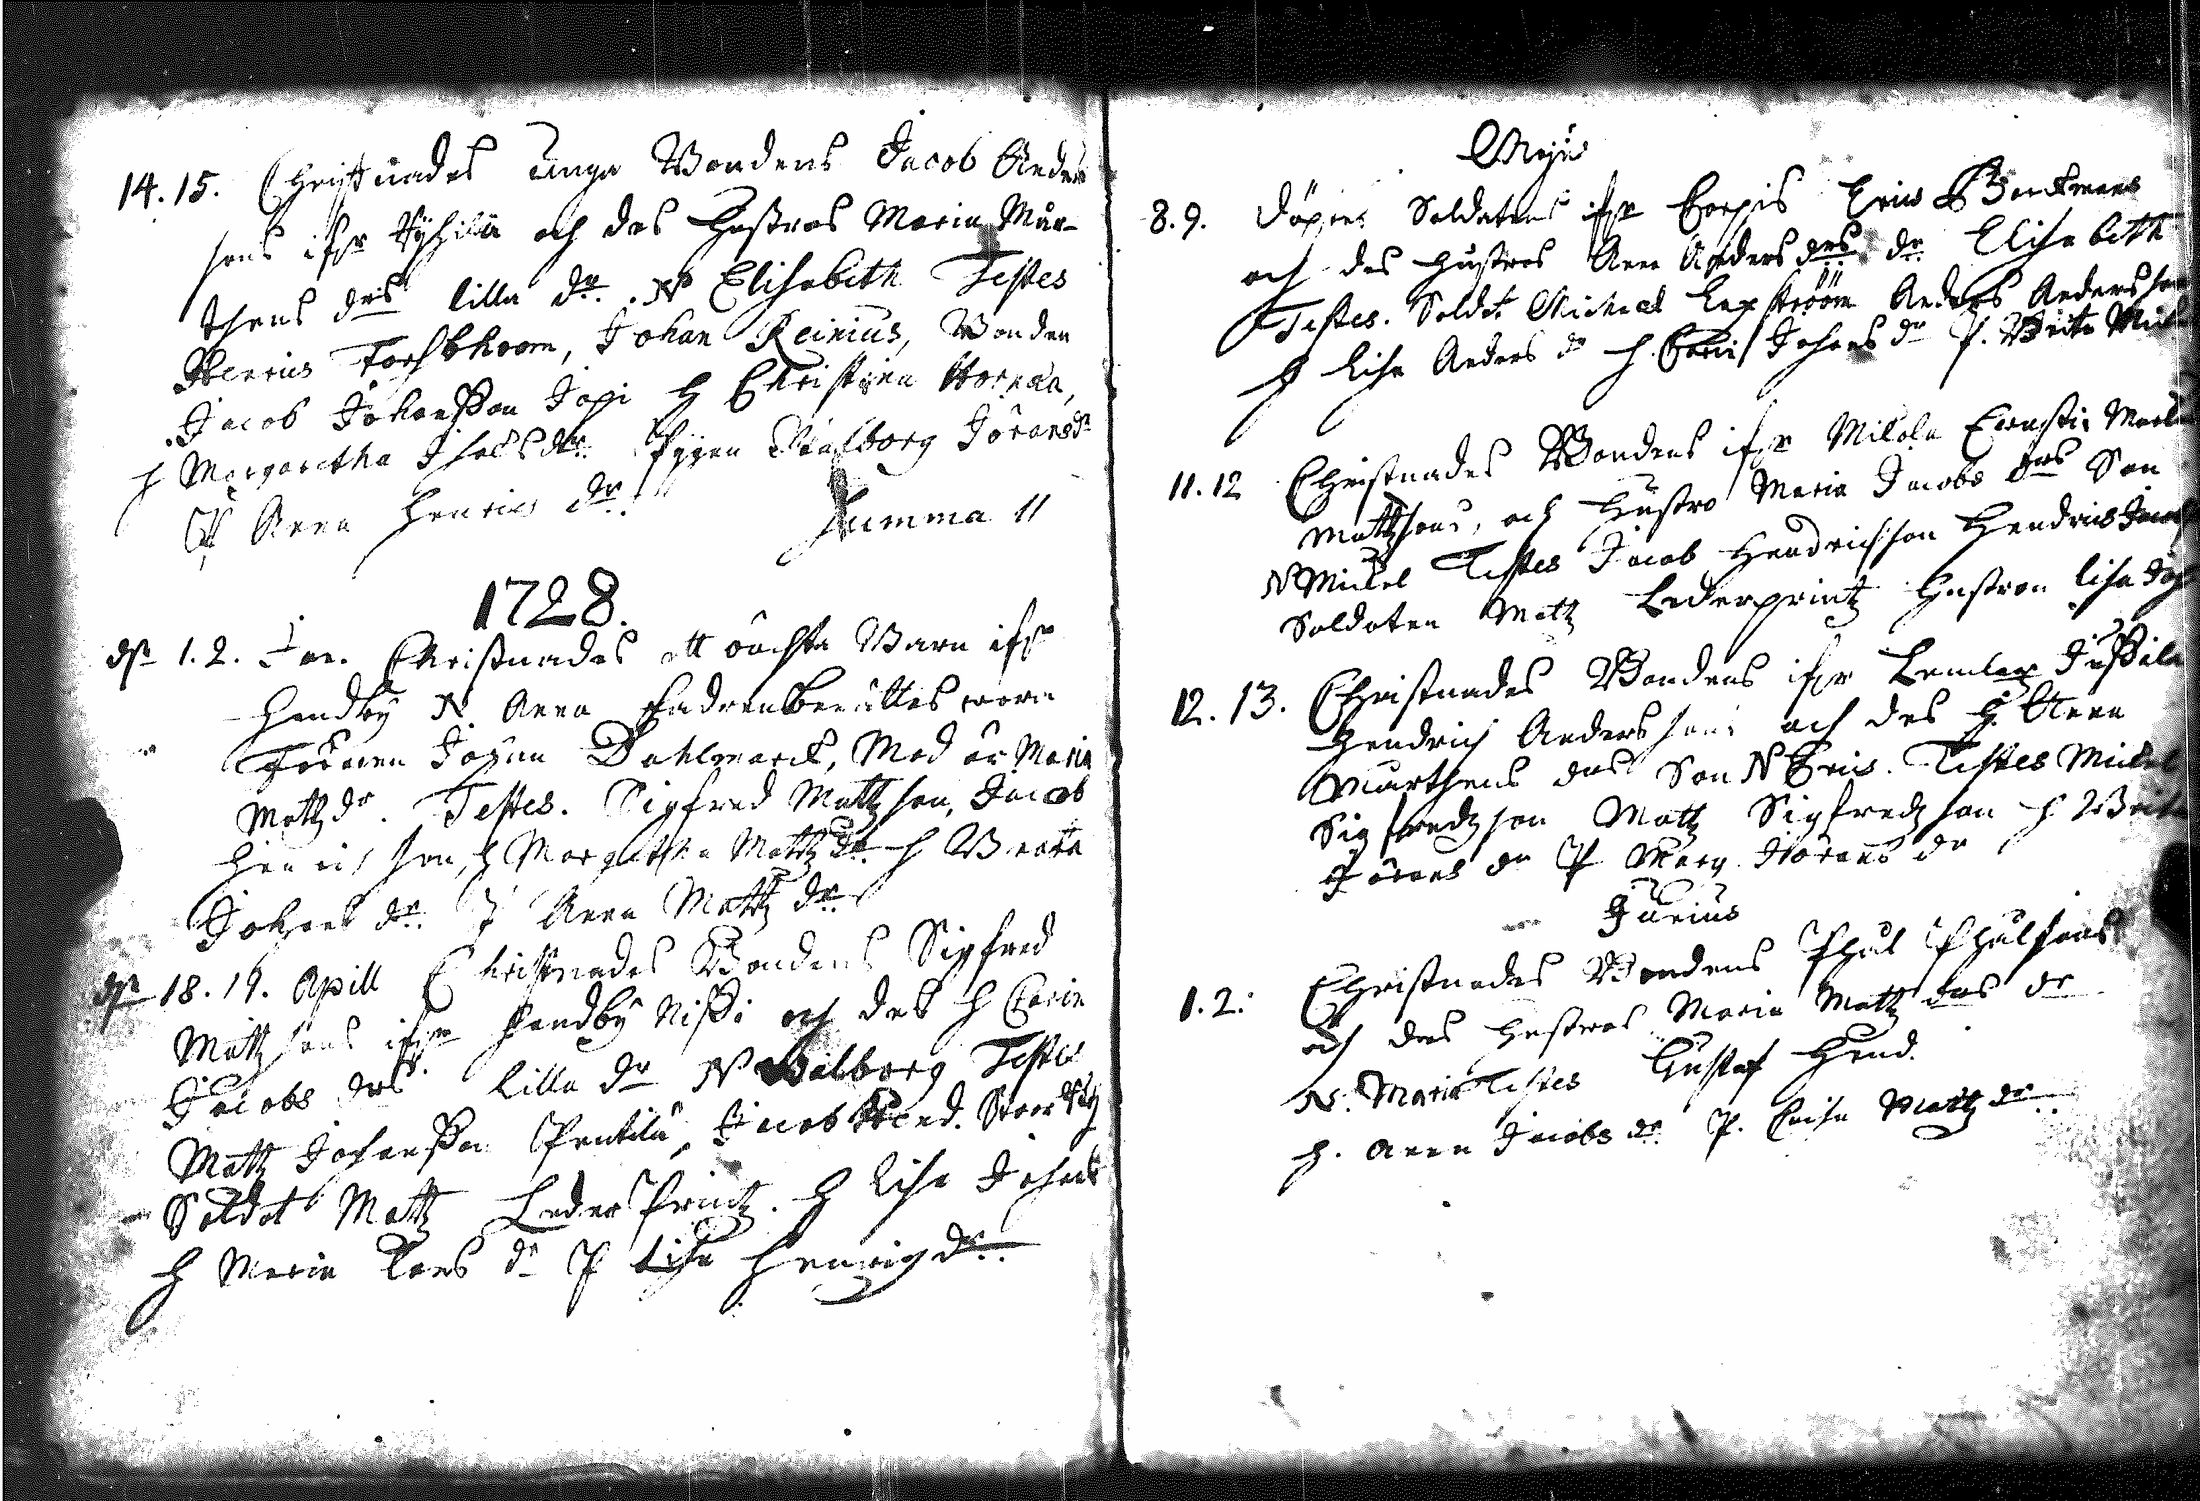 14. 15. Christnades unga Bondens Jacob Anders
sons ifrå Pyhilä och des Hustros Maria Mår-
thens drs lilla dr. N Elisabeth Testes
Henrics Forsbhoom, Johan Reinius, Bonden
Jacob Johansson Jopi H Christina
H Margaretha Isacs dr. Pygan Walborg Jörans dr
P Anna Henrics dr.
Summa 11
1728.
d. 1. 2. Jan. Christnades ett oächta Barn ifrå
Handby N. Anna
Johan Dahlmarck, Mod är Maria
Mattz dr. Testes. Sigfred Mattzson, Jacob
Henricsson, H Margetha Mattz dr H Beata
Johans dr. P Anna Mattz dr
d. 18. 19. Apill Christnades Bondens Sigfred
Mattzsons ifrå Handby Nissi och des H Carin
Jacobs drs lilla dr N Walborg Testes
Mattz Johansson Pentilä, Jacob Hend.
Soldat Mattz Leder Printz. H Lisa Johans
H Maria Lars dr P Lisa Henrigs dr.
Majus
8. 9. Döptes Soldatens ifrå Corpis Erics Bockmans
och des Hustros Anna Anders drs dr Elisabeth
Testes. Soldat Michael Anders Andersson
H Lisa Anders dr H Carin Johans dr P. Brita
11. 12 Christnades Bondens ifrå Mikola
Mattzsons, och Hustro Maria Jacobs drs Son
N Mickel Testes Jacob Hendrichson Hendrics
Soldaten Mattz Lederprintz Hustron Lisa
12. 13. Christnades Bondens ifrå Jussila
Hendrich Anderssons och des H. Anna
Mårthens drs Son N Eric. Testes Mickel
Sigfredzson Mattz Sigfredzson H Brita
Jörans dr P Marg Jörans dr
Junius
1. 2. Christnades Bondens Phål Phålsons
och des Hustros Maria Mattz drs dr
N. Maria Testes Gustaf Hend.
H. Anna Jacobs dr. P. Caisa Mattz dr.